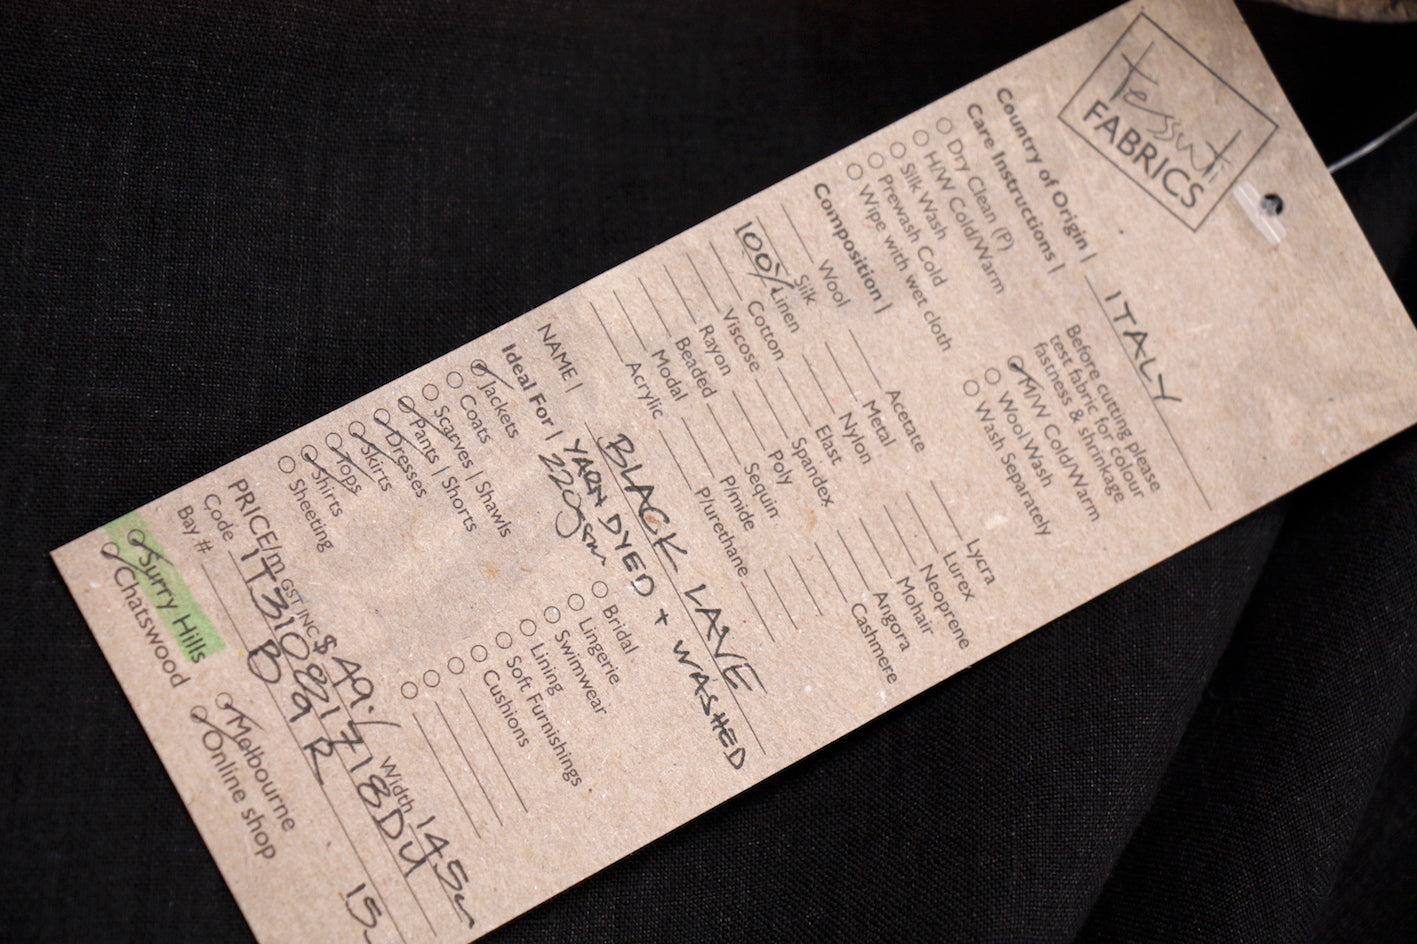 tessuti
FABRICS
Country of Origin | ITALY
Care Instructions |
Dry Clean (P)
H/W Cold/Warm
Silk Wash
Prewash Cold
Wipe with wet cloth
Before cutting please
test fabric for colour
fastness & shrinkage
M/W Cold/Warm
Wool Wash
Wash Separately
Composition |
Wool
Silk
100% Linen
Cotton
Viscose
Rayon
Beaded
Modal
Acrylic
Acetate
Metal
Nylon
Elast
Spandex
Poly
Sequin
P/mide
P/urethane
Lycra
Lurex
Neoprene
Mohair
Angora
Cashmere
NAME | BLACK LAVE
YARN DYED + WASHED
220gsm
Ideal For |
Jackets
Coats
Scarves | Shawls
Pants | Shorts
Dresses
Skirts
Tops
Shirts
Sheeting
Bridal
Lingerie
Swimwear
Lining
Soft Furnishings
Cushions
PRICE/m GST INC $49./ Width 145cm
Code
Bay #
Surry Hills
Chatswood
Melbourne
Online shop